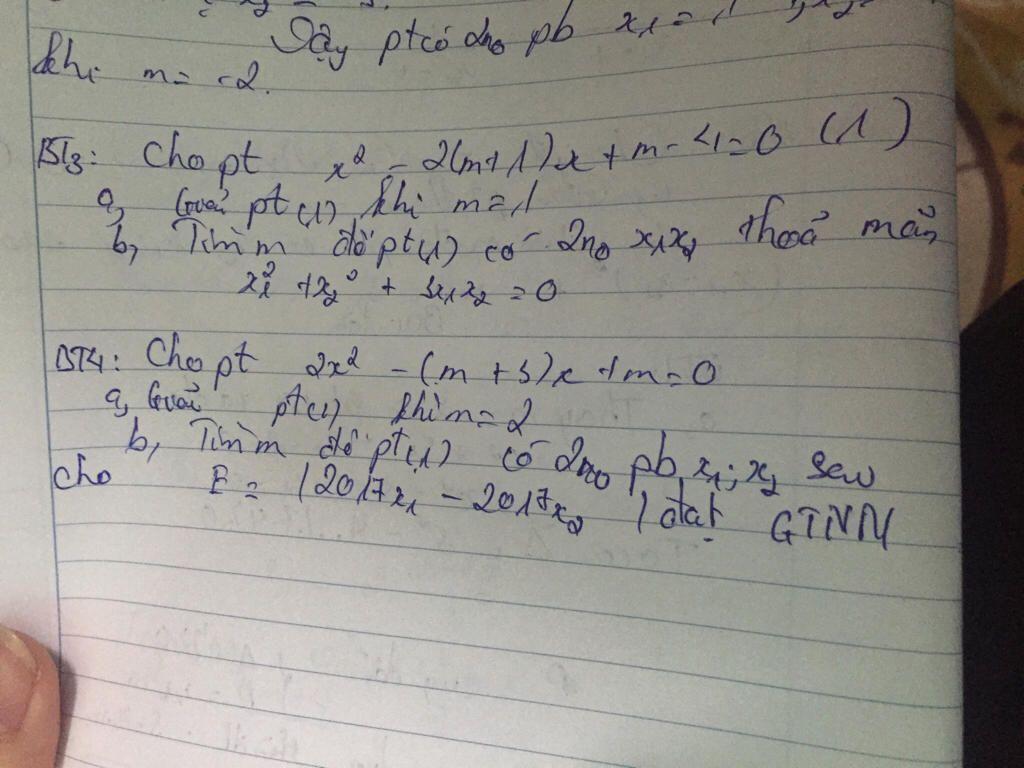 Vậy pt có 2no pb x₁ = 1 ; x₂
khi m = -2.
BT3: Cho pt x² - 2(m+1)x + m - 4 = 0 (1)
a, Giải pt(1) khi m = 1
b, Tìm m để pt(1) có 2no x₁x₂ thoả mãn
x₁² + x₂² + 3x₁x₂ = 0
BT4: Cho pt 2x² - (m + 3)x + m = 0
a, Giải pt(1) khi m = 2
b, Tìm m để pt(1) có 2no pb x₁; x₂ sao
cho B = |2017x₁ - 2017x₂| đạt GTNN